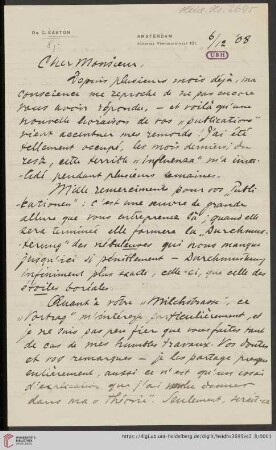 Heid. Hs. 3695
Dr. C. EASTON
AMSTERDAM
6/12 '08
UBH
Cher Monsieur,
Depuis plusieurs mois déjà, ma
conscience me reproche de ne pas encore
vous avoir répondu, — et voilà qu'une
nouvelle livraison de vos „publications"
vient accentuer mes remords. J'ai été
tellement occupé, les mois derniers; du
reste, cette terrible „influenza" m'a
pendant plusieurs semaines.
Mille remerciments pour vos „Publi-
kationen": c'est une œuvre de grande
allure que vous entreprenez là; quand elle
sera terminée elle formera la „Durchmus-
terung" des nébuleuses qui nous manque
jusqu'ici si péniblement — Durchmusterung
infiniment plus exacte, celle-ci, que celle des
étoiles boréales.
Quant à votre „Milchstrasse", ce
„Vortrag" m'intéresse particulièrement, et
je ne suis pas peu fier que vous faites tant
de cas de mes humbles travaux. Vos doutes
et vos remarques — je les partage presque
entièrement, aussi ce n'est qu'un essai
d'explication que j'ai voulu donner
dans ma „Théorie". Seulement,